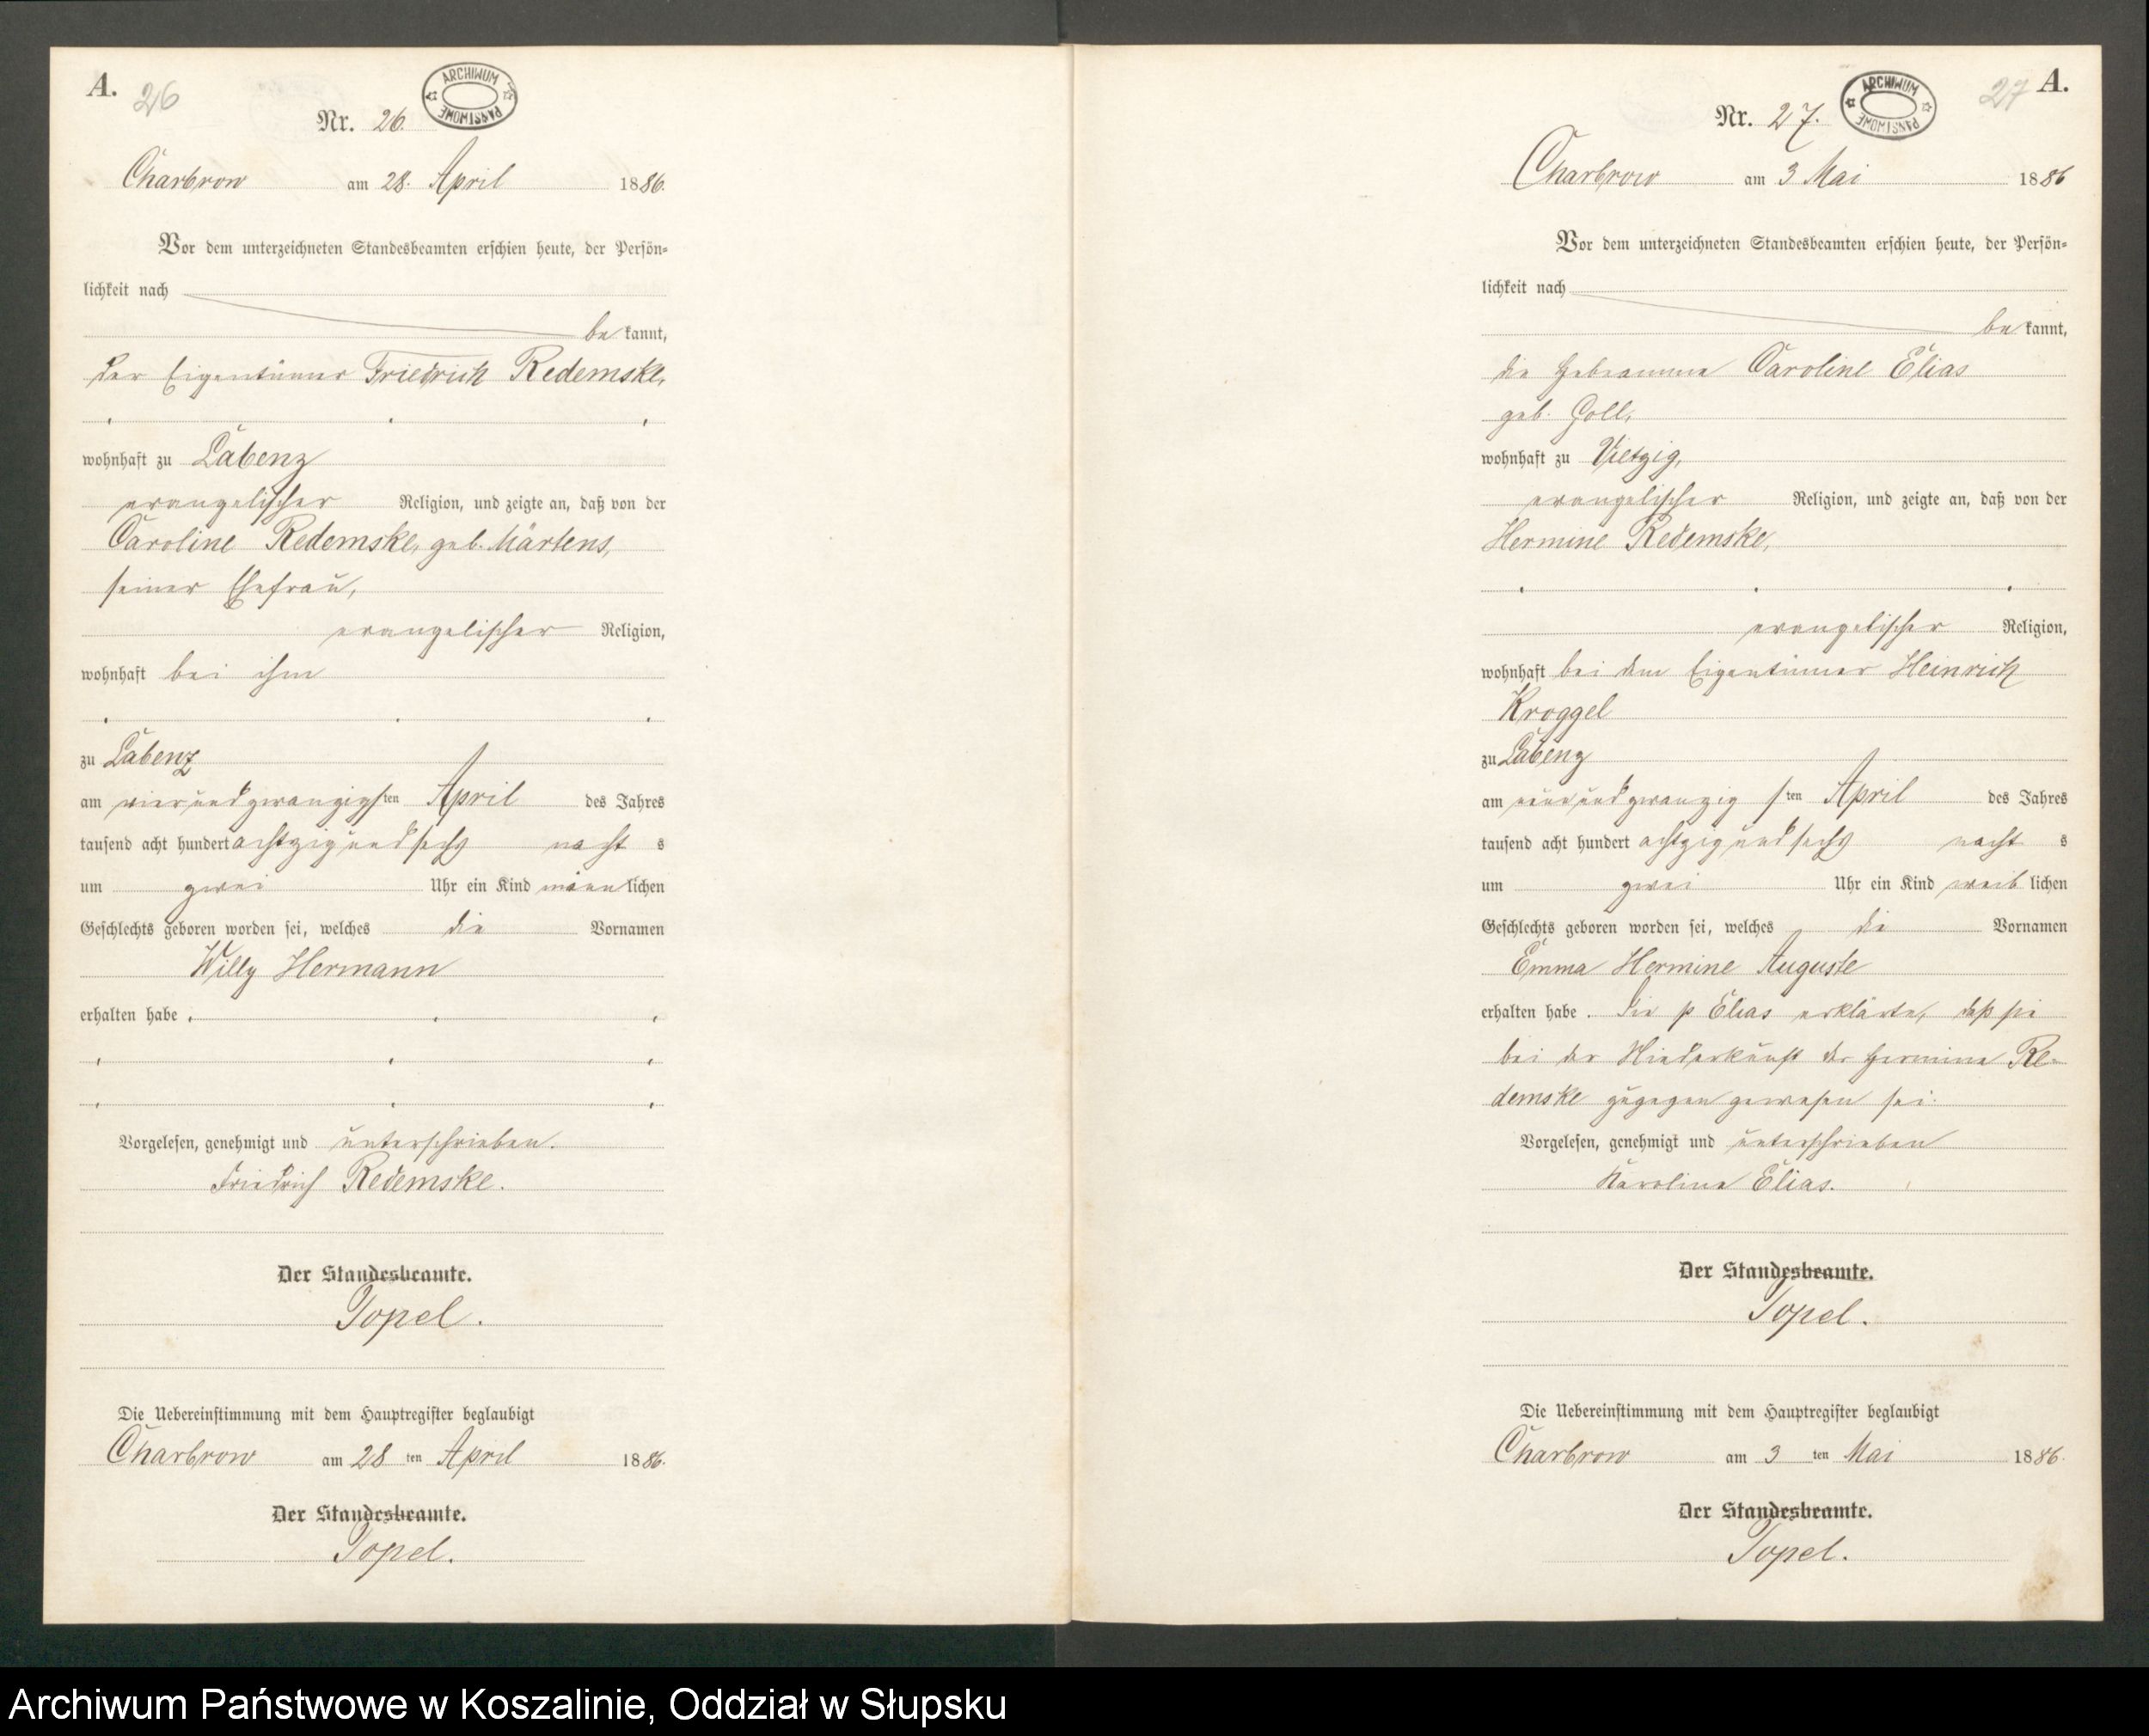 A. 26
ARCHIWUM PAŃSTWOWE
Nr. 26.
Charbrow am 28. April 1886.
Vor dem unterzeichneten Standesbeamten erschien heute, der Persön=
lichkeit nach
be kannt,
der Eigentümer Friedrich Redemske,
wohnhaft zu Labenz
evangelischer Religion, und zeigte an, daß von der
Caroline Redemske, geb. Märtens,
seiner Ehefrau,
evangelischer Religion,
wohnhaft bei ihm
zu Labenz
am vierundzwanzigsten April des Jahres
tausend acht hundert achtzig und sechs nachts
um zwei Uhr ein Kind männlichen
Geschlechts geboren worden sei, welches die Vornamen
Willy Hermann
erhalten habe.
Vorgelesen, genehmigt und unterschrieben.
Friedrich Redemske.
Der Standesbeamte.
Topel.
Die Uebereinstimmung mit dem Hauptregister beglaubigt
Charbrow am 28 ten April 1886.
Der Standesbeamte.
Topel.
27 A.
ARCHIWUM PAŃSTWOWE
Nr. 27.
Charbrow am 3 Mai 1886
Vor dem unterzeichneten Standesbeamten erschien heute, der Persön=
lichkeit nach
be kannt,
die Hebeamme Caroline Elias
geb. Goll,
wohnhaft zu Vietzig,
evangelischer Religion, und zeigte an, daß von der
Hermine Redemske,
evangelischer Religion,
wohnhaft bei dem Eigentümer Heinrich
Kroggel
zu Labenz
am neunundzwanzig sten April des Jahres
tausend acht hundert achtzig und sechs nachts
um zwei Uhr ein Kind weiblichen
Geschlechts geboren worden sei, welches die Vornamen
Emma Hermine Auguste
erhalten habe. Die p Elias erklärte, daß sie
bei der Niederkunft der Hermine Re=
demske zugegen gewesen sei.
Vorgelesen, genehmigt und unterschrieben
Karoline Elias.
Der Standesbeamte.
Topel.
Die Uebereinstimmung mit dem Hauptregister beglaubigt
Charbrow am 3 ten Mai 1886.
Der Standesbeamte.
Topel.
Archiwum Państwowe w Koszalinie, Oddział w Słupsku